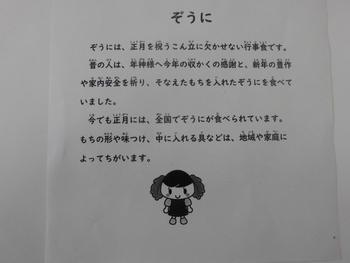 ぞうに
ぞうには、正月を祝うこん立に欠かせない行事食です。
昔の人は、年神様へ今年の収かくの感謝と、新年の豊作
や家内安全を祈り、そなえたもちを入れたぞうにを食べて
いました。
今でも正月には、全国でぞうにが食べられています。
もちの形や味つけ、中に入れる具などは、地域や家庭に
よってちがいます。